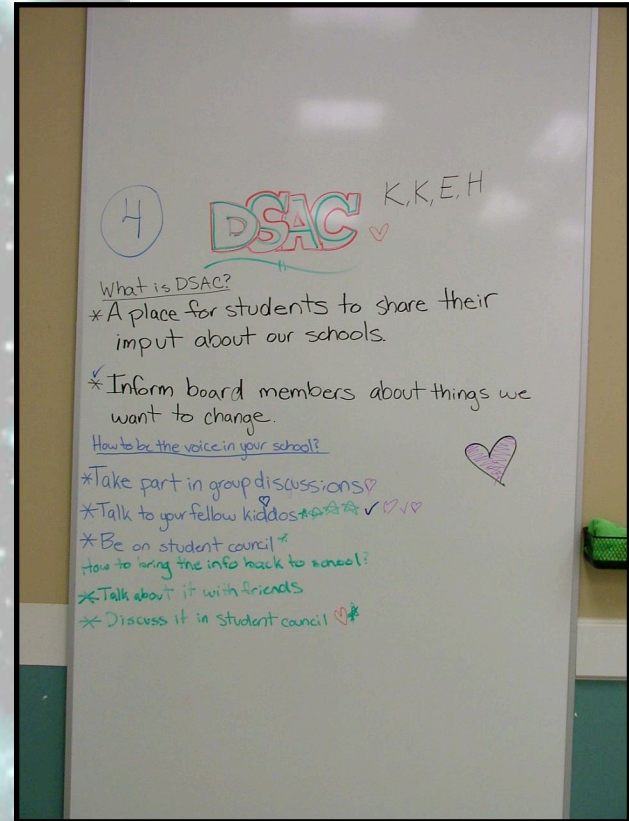 4
DSAC
K, K, E, H
What is DSAC?
* A place for students to share their
imput about our schools.
* Inform board members about things we
want to change.
How to be the voice in your school?
* Take part in group discussions
* Talk to your fellow kiddos
* Be on student council
How to bring the info back to school?
* Talk about it with friends
* Discuss it in student council